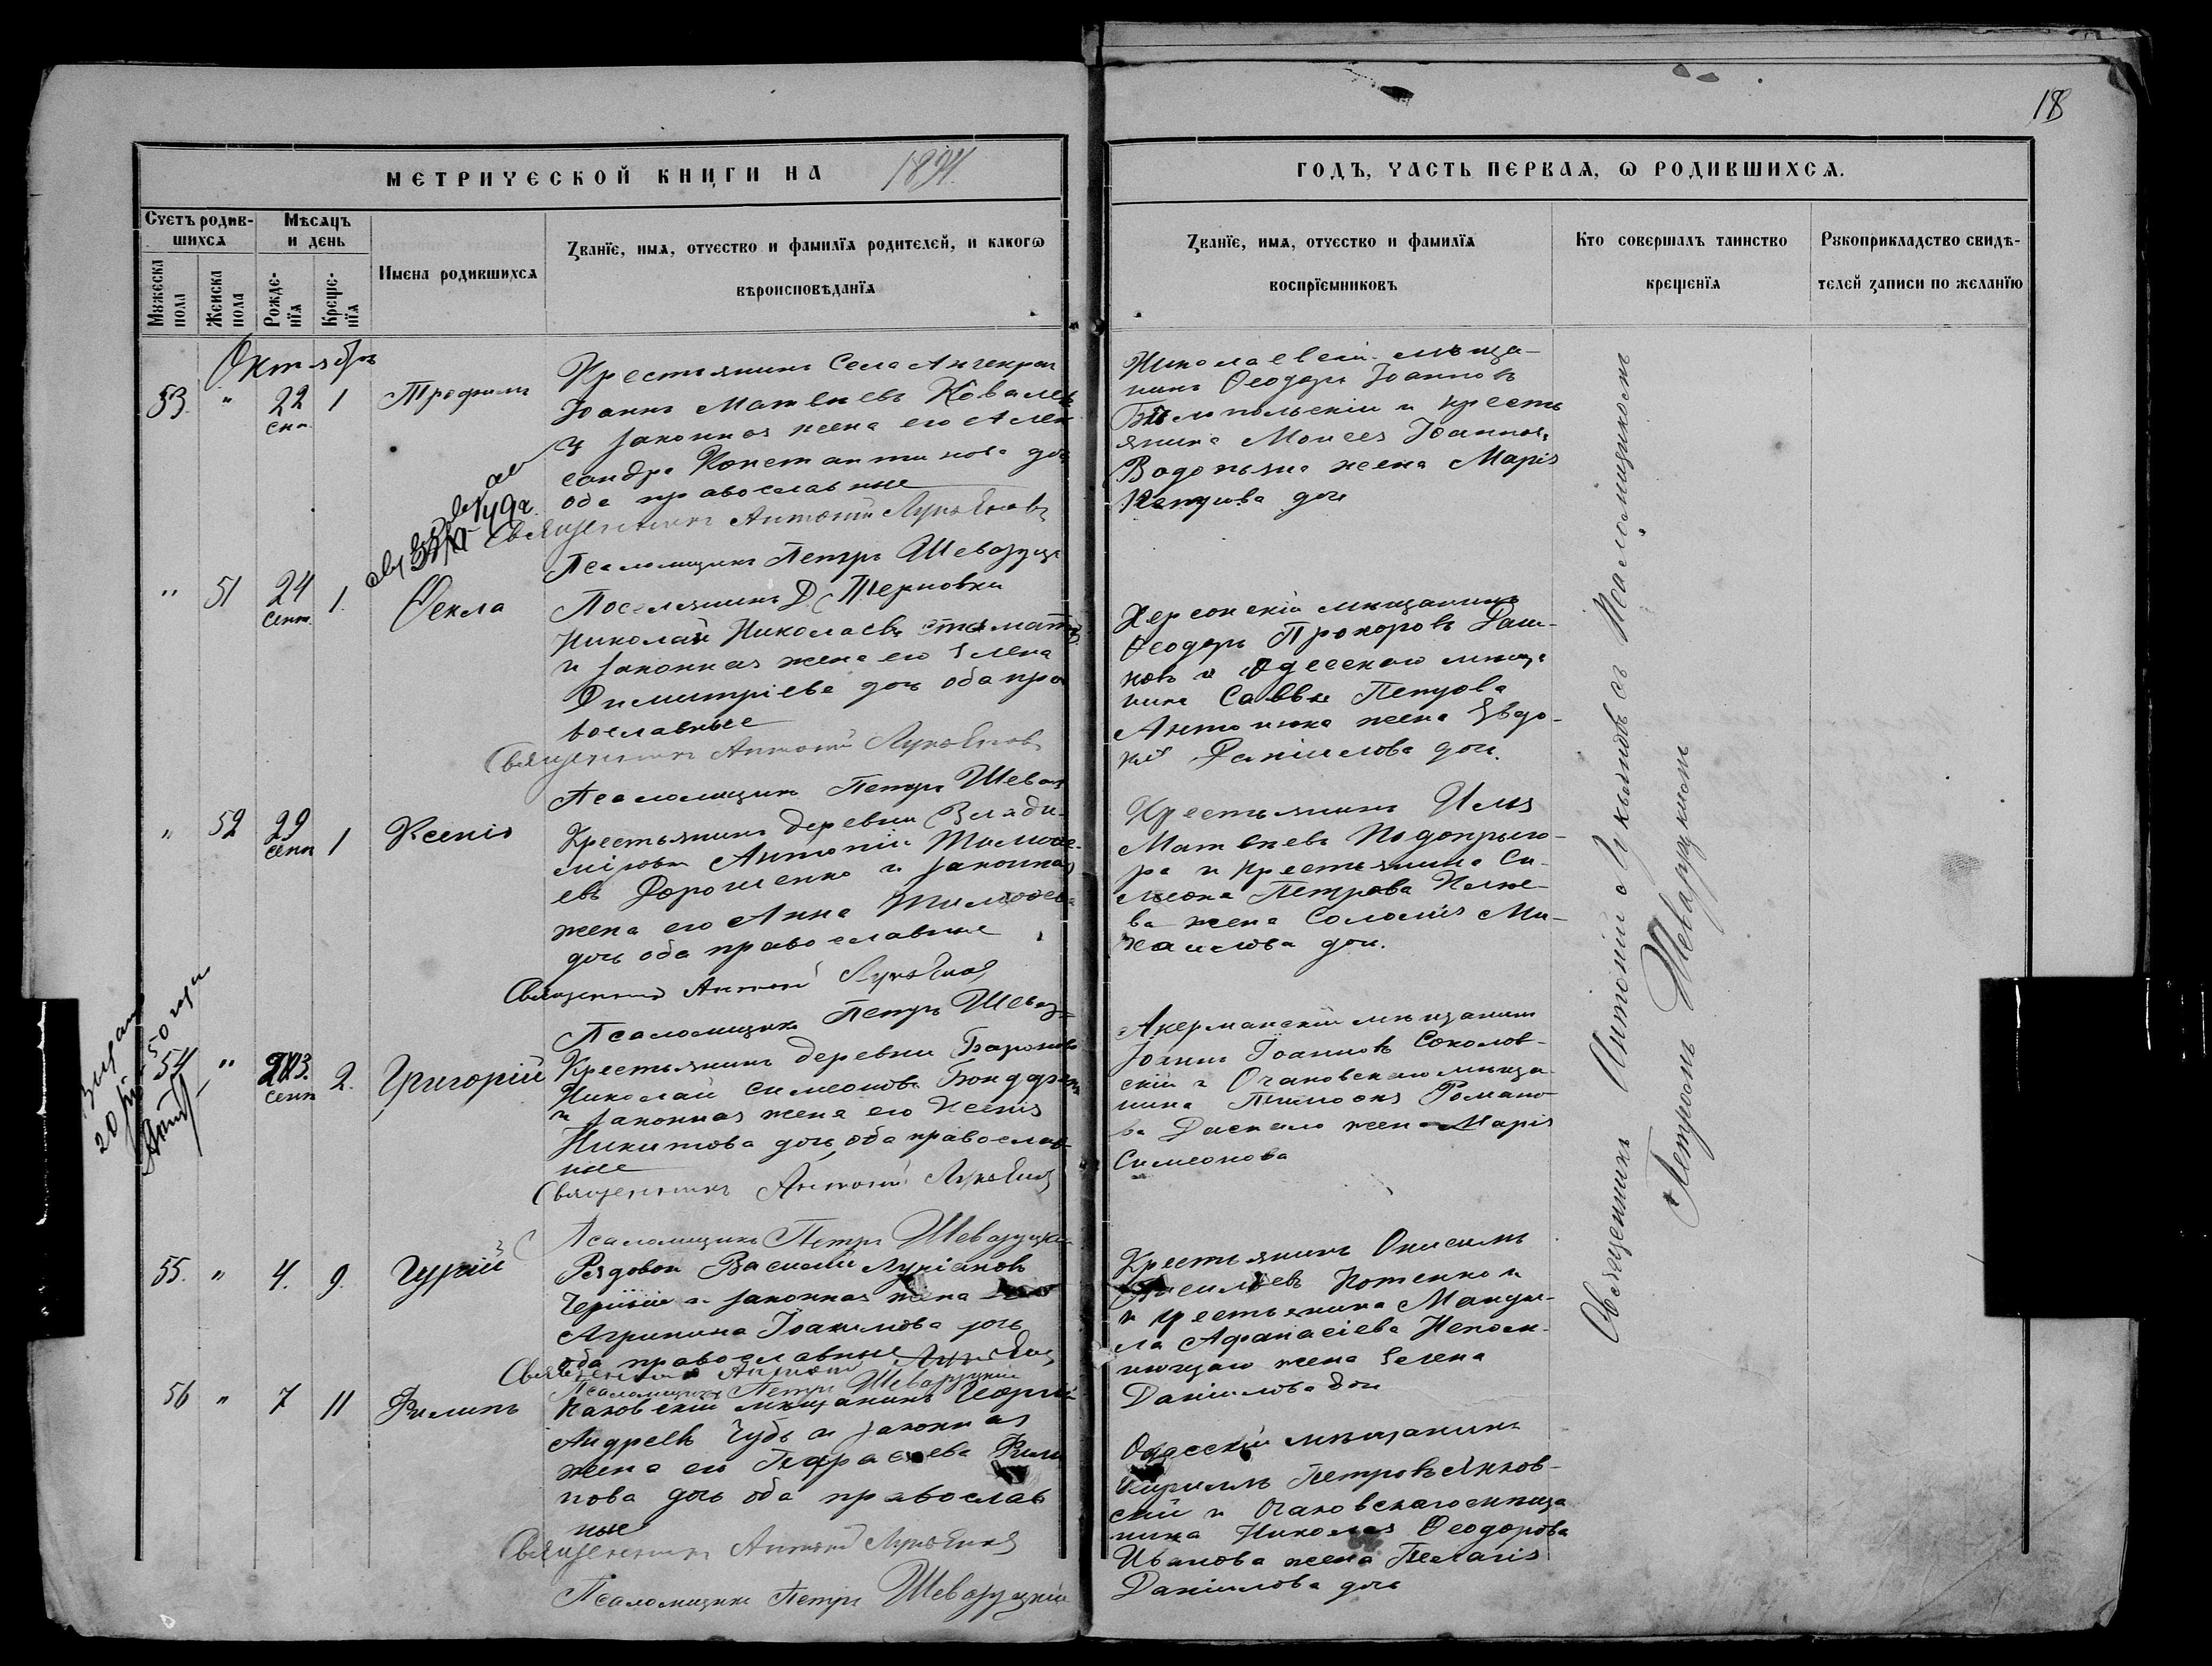 18
МЕТРИЧЕСКОЙ КНИГИ НА 1894
ГОДЪ, ЧАСТЬ ПЕРВАѦ, Ѡ РОДИВШИХСѦ.
Счетъ родив-
шихсѧ
Мѣсѧцъ
и день
Мꙋжеска
пола
Женска
пола
Рожде-
нїѧ
Креще-
нїѧ
Имена родившихсѧ
Званїе, имѧ, отчество и фамилїѧ родителей, и какогѡ
вѣроисповѣданїѧ
Званїе, имѧ, отчество и фамилїѧ
воспрїемниковъ
Кто совершалъ таинство
крещенїѧ
Рꙋкоприкладство свидѣ-
телей записи по желанїю
Октябрь
53. " 22 сен. 1 Трофимъ
Крестьянинъ Села
Іоаннъ Матвѣевъ Ковалев
и законная жена его Алек
сандра Константинова дочь
оба православные
Священникъ Антоній Лукьяновъ
Псаломщикъ Петръ Шевазуцкій
Николаевскій мѣща-
нинъ Ѳеодоръ Іоанновъ
Бѣлопольскій и кресть
янина Моисея Іоаннова
Водопьяна жена Марія
дочь
" 51 24 сент. 1. Ѳекла
Поселянинъ Д. Терновки
Николай Николаевъ Стамат
и законная жена его Елена
Димитріева дочь оба пра
вославные
Священникъ Антоній Лукьяновъ
Псаломщикъ Петръ Шеваз
Херсонскій мѣщанинъ
Ѳеодоръ Прохоровъ Даш-
ковъ и Одесскаго мѣща
нина Саввы Петрова
Антонюка жена Евдо-
кія Даніилова дочь.
" 52 29 сент 1 Ксенія
Крестьянинъ деревни Влади-
міровки Антоній Тимоѳе-
евъ Дорошенко и законная
жена его Анна Тимоѳеева
дочь оба православные
Священникъ Антоній Лукьянов
Псаломщикъ Петръ Шеваз
Крестьянинъ Илья
Матвѣевъ Подопрыго-
ра и крестьянина Си-
меона Петрова
ва жена Соломія Ми-
хаилова дочь.
54 " сент 2. Григорій
Крестьянинъ деревни
Николай Симеоновъ Бондаренко
и законная жена его Ксенія
Никитова дочь, оба православ-
ные
Священникъ Антоній Лукьянов
Псаломщикъ Петръ Шевазуцкій
Акерманскій мѣщанинъ
Іоаннъ Іоанновъ Соколов-
скій и Очаковскаго мѣща-
нина Тимоѳея Романо-
ва жена Марія
Симеонова
55. " 4. 9. Гурій
Рядовой Василій Лукіановъ
и законная жена его
Агрипина Іоакимова дочь
оба православные
Священникъ Антоній Лукьянов
Псаломщикъ Петръ Шевазуцкій
Крестьянинъ Онисимъ
Васильевъ Котенко и
крестьянина Мануи-
ла Афанасіева Непом-
нющаго жена Елена
Даніилова дочь
56 " 7 11 Филипъ
Очаковскій мѣщанинъ Георгій
Андреевъ Чубъ и законная
жена его Параскева Фили
пова дочь оба православ
ные
Священникъ Антоній Лукьянов
Псаломщикъ Петръ Шевазуцкій
Одесскій мѣщанинъ
Кириллъ Петровъ Янков-
скій и Очаковскаго мѣща
нина Николая Ѳеодорова
Иванова жена Пелагія
Даніилова дочь
Священникъ Антоній Лукьяновъ съ Псаломщикомъ
Петромъ Шевазуцкимъ